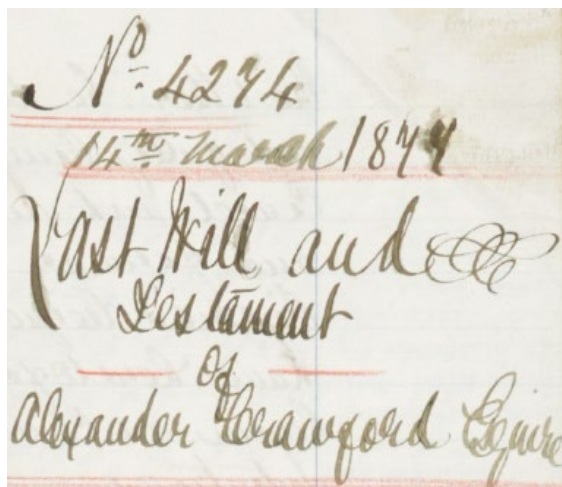 No. 4274
14th March 1877
Last Will and
Testament
of
Alexander Crawford Esquire